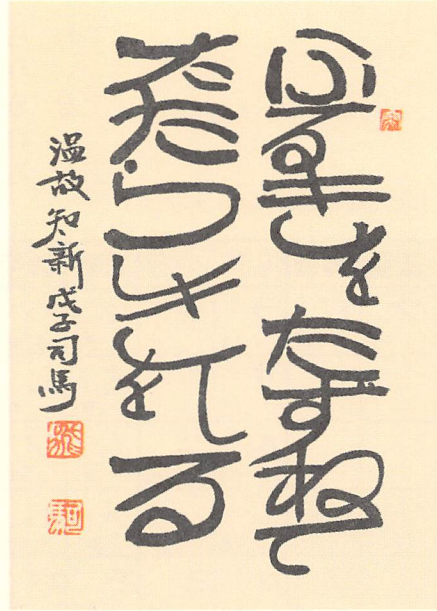 ふるきをたずねて
あたらしきをしる
温故知新 戊子司馬